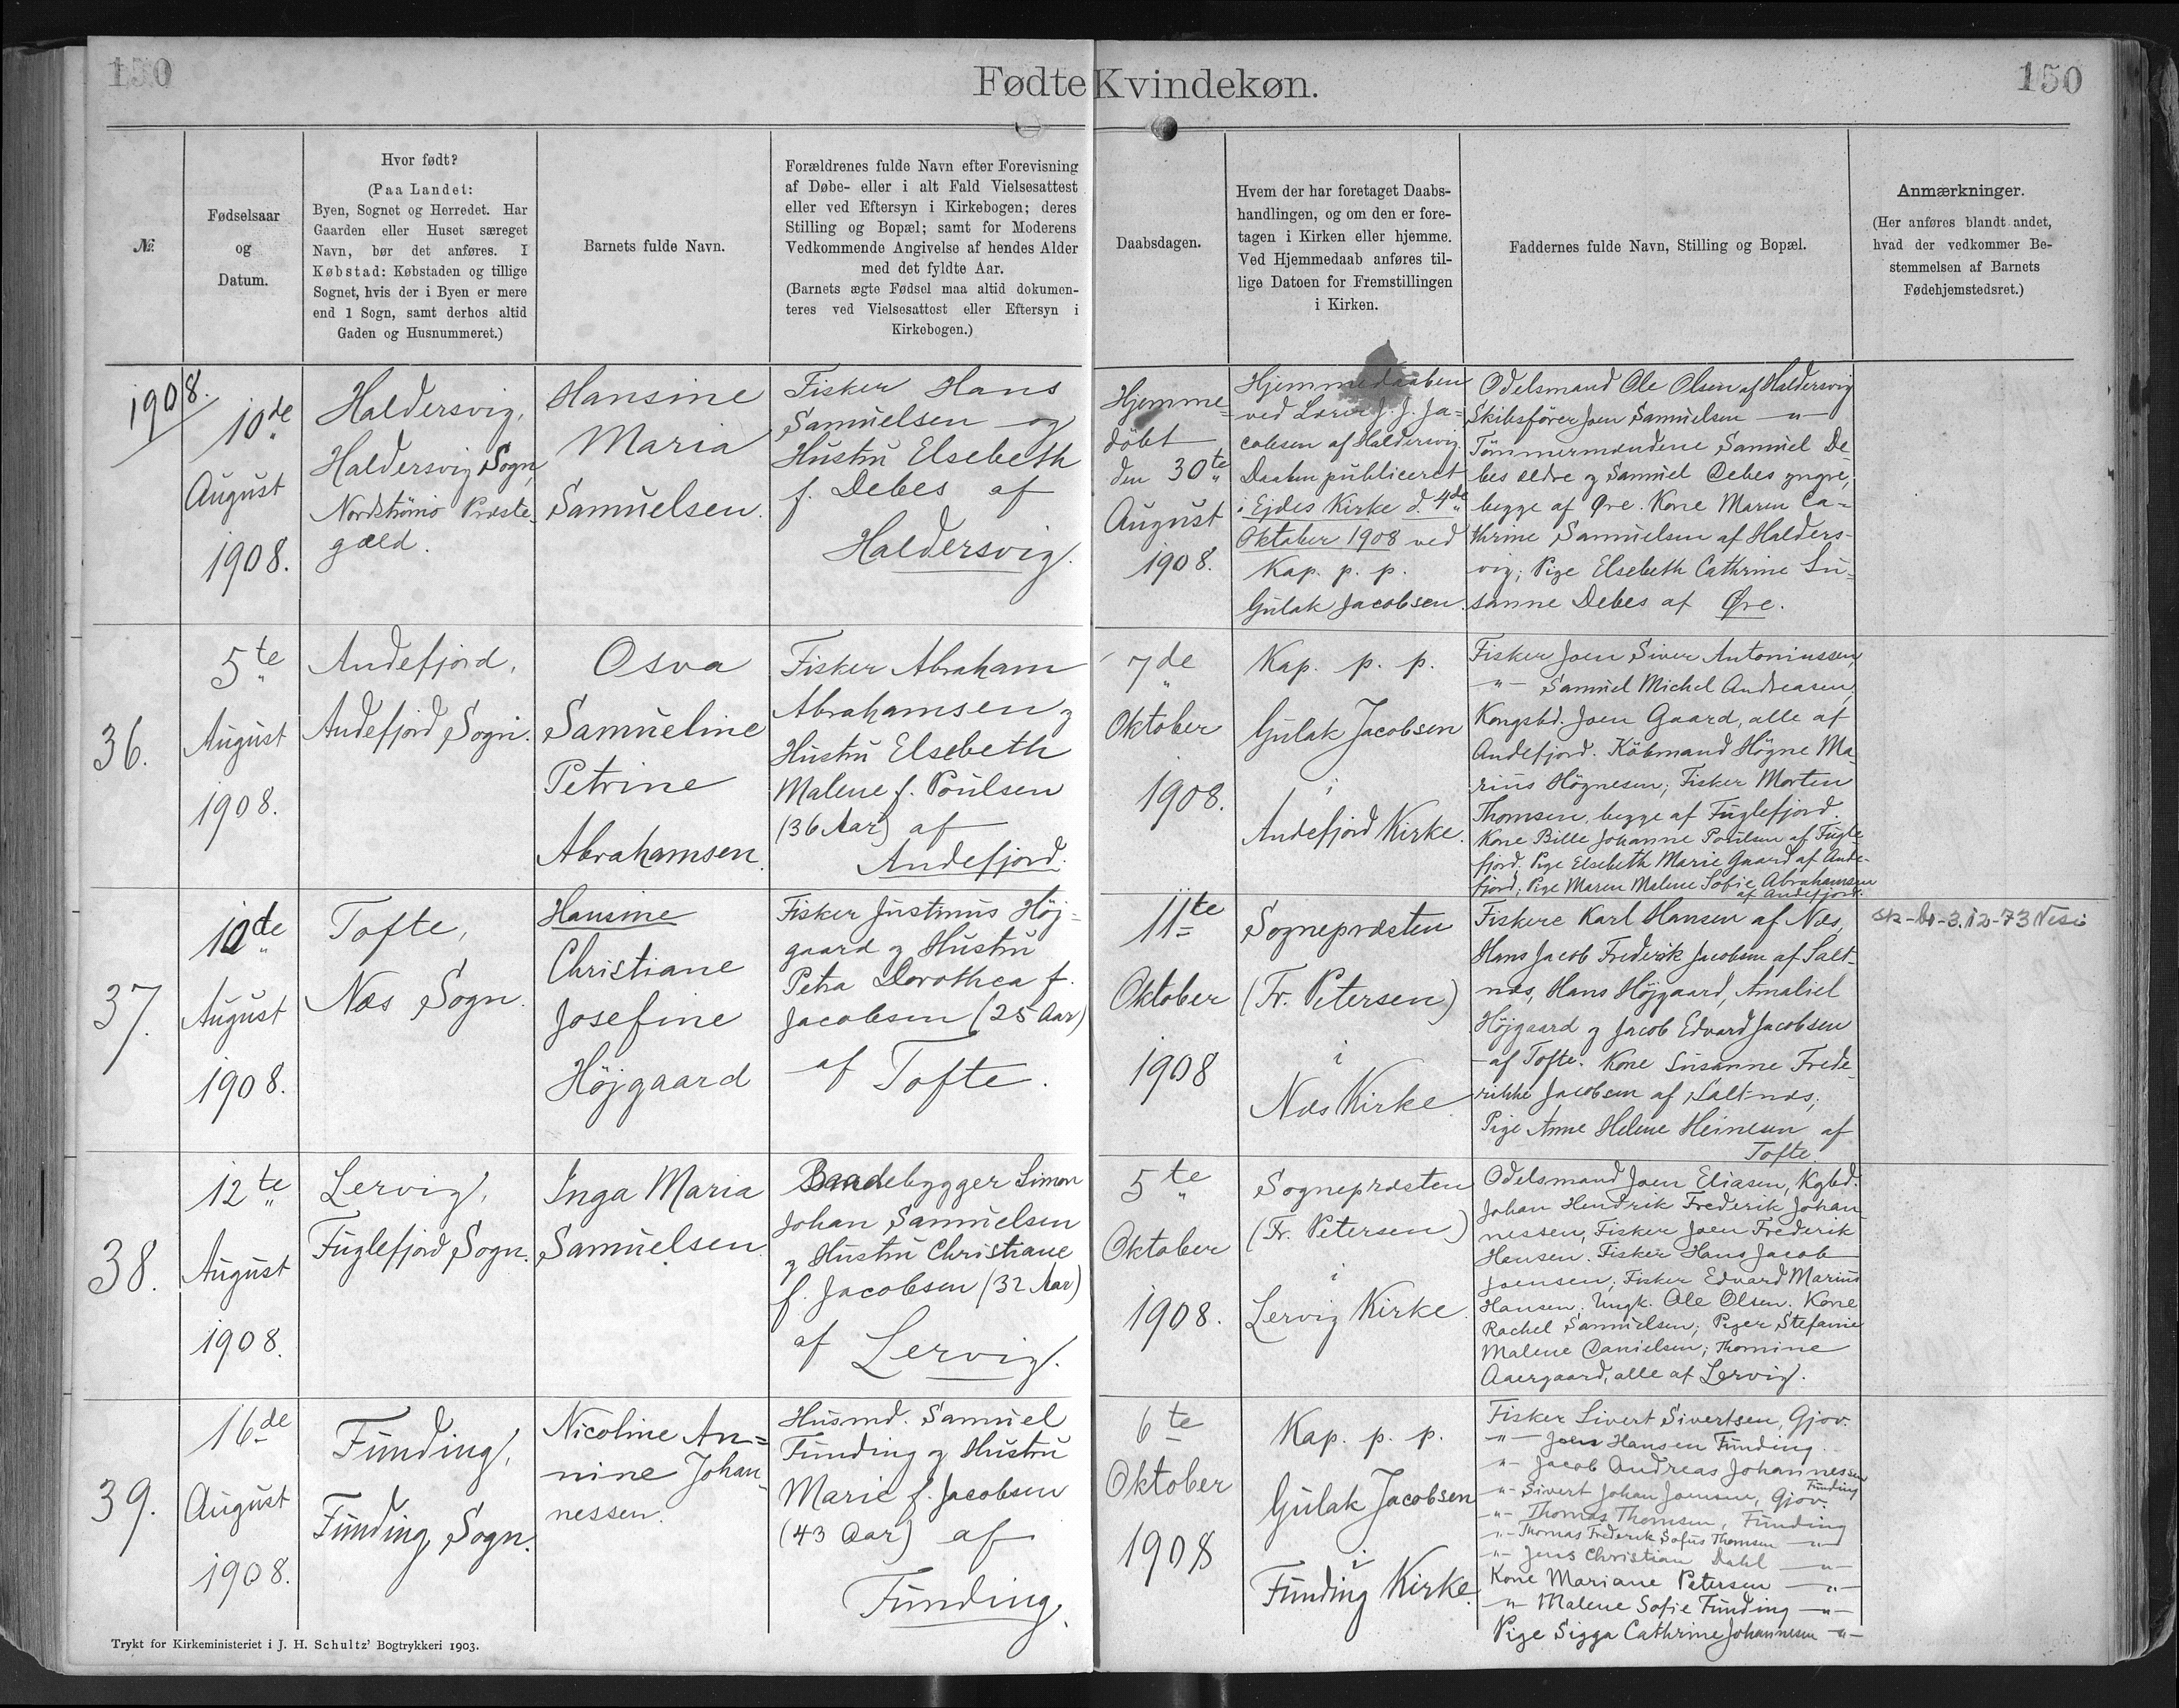 150
Fødte Kvindekøn.
150
№.
Fødselsaar
og
Datum.
Hvor født?
(Paa Landet:
Byen, Sognet og Herredet. Har
Gaarden eller Huset særeget
Navn, bør det anføres. I
Købstad: Købstaden og tillige
Sognet, hvis der i Byen er mere
end 1 Sogn, samt derhos altid
Gaden og Husnummeret.)
Barnets fulde Navn.
Forældrenes fulde Navn efter Forevisning
af Døbe- eller i alt Fald Vielsesattest
eller ved Eftersyn i Kirkebogen; deres
Stilling og Bopæl; samt for Moderens
Vedkommende Angivelse af hendes Alder
med det fyldte Aar.
(Barnets ægte Fødsel maa altid dokumen-
teres ved Vielsesattest eller Eftersyn i
Kirkebogen.)
Daabsdagen.
Hvem der har foretaget Daabs-
handlingen, og om den er fore-
tagen i Kirken eller hjemme.
Ved Hjemmedaab anføres til-
lige Datoen for Fremstillingen
i Kirken.
Faddernes fulde Navn, Stilling og Bopæl.
Anmærkninger.
(Her anføres blandt andet,
hvad der vedkommer Be-
stemmelsen af Barnets
Fødehjemstedsret.)
1908.
10de
August
1908.
Haldersvig,
Haldersvig Sogn,
Nordstrømø Præste-
gæld.
Hansine
Maria
Samuelsen.
Fisker Hans
Samuelsen og
Hustru Elsebeth
f. Debes af
Haldersvig.
Hjemme-
döbt
den 30te
August
1908.
Hjemmedaaben
ved Lærer J. J. Ja-
cobsen af Haldersvig.
Daaben publiceret
i Ejdes Kirke d. 4de
Oktober 1908 ved
Kap. p. p.
Gulak Jacobsen.
Odelsmand Ole Olsen af Haldersvig
Skibsfører Joen Samuelsen -"-
Tömmermændene Samuel De-
bes ældre og Samuel Debes yngre,
begge af Øre. Kone Maren Ca-
thrine Samuelsen af Halders-
vig; Pige Elsebeth Cathrine Su-
sanne Debes af Øre.
36.
5te
August
1908.
Andefjord,
Andefjord Sogn.
Osva
Samueline
Petrine
Abrahamsen.
Fisker Abraham
Abrahamsen og
Hustru Elsebeth
Malene f. Poulsen
(36 Aar) af
Andefjord.
7de
Oktober
1908.
Kap. p. p.
Gulak Jacobsen
i
Andefjord Kirke.
Fisker Joen Siver Antoniussen,
-"- Samuel Michel Andreasen,
Kongsbd. Joen Gaard, alle af
Andefjord. Köbmand Högne Ma-
rius Högnesen; Fisker Morten
Thomsen, begge af Fuglefjord.
Kone Bille Johanne Poulsen af Fugle-
fjord; Pige Elsebeth Marie Gaard af Ande-
fjord; Pige Maren Malene Sofie Abrahamsen
af Andefjord.
37.
10de
August
1908.
Tofte,
Næs Sogn.
Hansine
Christiane
Josefine
Höjgaard
Fisker Justinus Höj-
gaard og Hustru
Petra Dorothea f.
Jacobsen (25 Aar)
af Tofte.
11te
Oktober
1908
Sognepræsten
(Fr. Petersen)
i
Næs Kirke.
Fiskere Karl Hansen af Næs,
Hans Jacob Frederik Jacobsen af Salt-
næs, Hans Höjgaard, Amaliel
Höjgaard og Jacob Edvard Jacobsen
af Tofte. Kone Susanne Frede-
rikke Jacobsen af Saltnæs;
Pige Anne Helene Heinesen af
Tofte.
3.12-73
38.
12te
August
1908.
Lervig,
Fuglefjord Sogn.
Inga Maria
Samuelsen.
Baadebygger Simon
Johan Samuelsen
og Hustru Christiane
f. Jacobsen (32 Aar)
af Lervig.
5te
Oktober
1908.
Sognepræsten
(Fr. Petersen)
i
Lervig Kirke.
Odelsmand Joen Eliasen, Kgbd.
Johan Hendrik Frederik Johan-
nessen, Fisker Joen Frederik
Hansen. Fisker Hans Jacob
Joensen; Fisker Edvard Marius
Hansen; Ungk. Ole Olsen. Kone
Rachel Samuelsen; Piger Stefanie
Malene Danielsen; Thomine
Aaergaard, alle af Lervig.
39.
16de
August
1908.
Funding,
Funding Sogn.
Nicoline An-
nine Johan-
nessen.
Husmd. Samuel
Funding og Hustru
Marie f. Jacobsen
(43 Aar) af
Funding.
6te
Oktober
1908
Kap. p. p.
Gulak Jacobsen
i
Funding Kirke.
Fisker Sivert Sivertsen, Gjov.
-"- Joen Hansen Funding.
-"- Jacob Andreas Johannessen
Funding
-"- Sivert Johan Joensen, Gjov.
-"- Thomas Thomsen, Funding
-"- Thomas Frederik Sofus Thomsen -"-
-"- Jens Christian Dahl -"-
Kone Mariane Petersen -"-
-"- Malene Sofie Funding -"-
Pige Sigga Cathrine Johannesen -"-
Trykt for Kirkeministeriet i J. H. Schultz' Bogtrykkeri 1903.